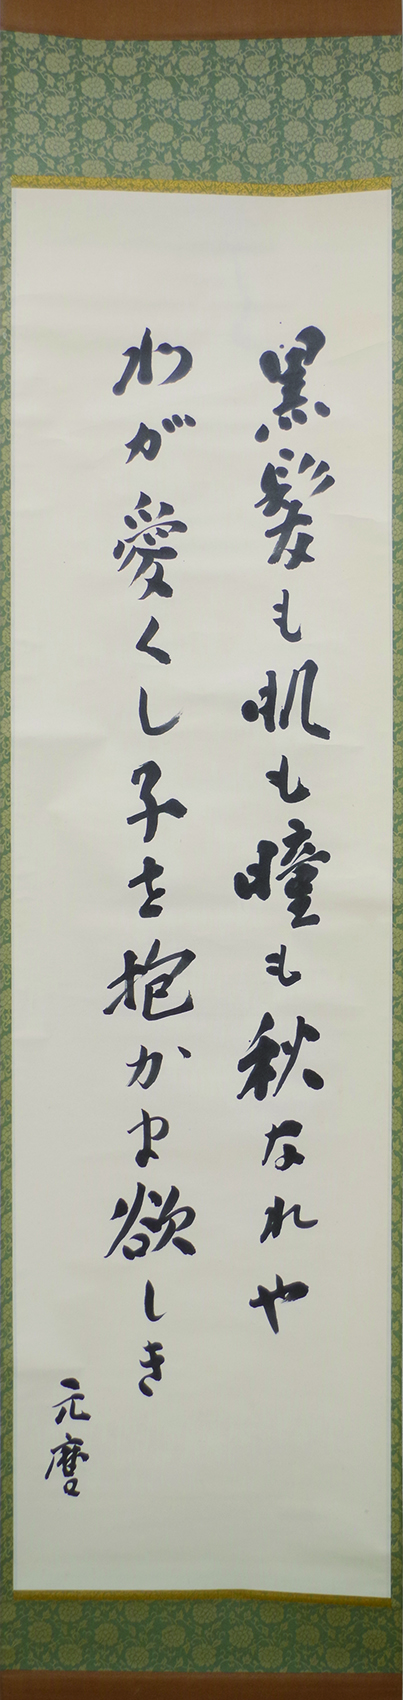 黒髪も肌も瞳も秋なれや
わが愛くし子を抱かま欲しき
元麿